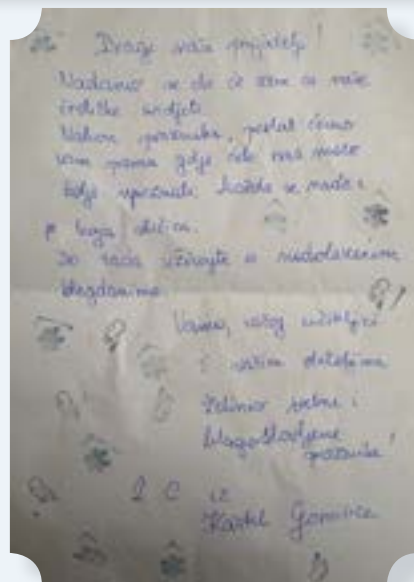 Dragi naši prijatelji!
Nadamo se da će vam se naše
čestitke svidjeti.
Nakon praznika, poslat ćemo
vam pisma gdje ćete nas moći
bolje upoznati. Možda se nađe i
koja sličica.
Do tada uživajte u nadolazećim
blagdanima.
Vama, učiteljici
i vašim obiteljima
želimo sretne i
blagoslovljene
praznike!
2. C iz
Kaštel